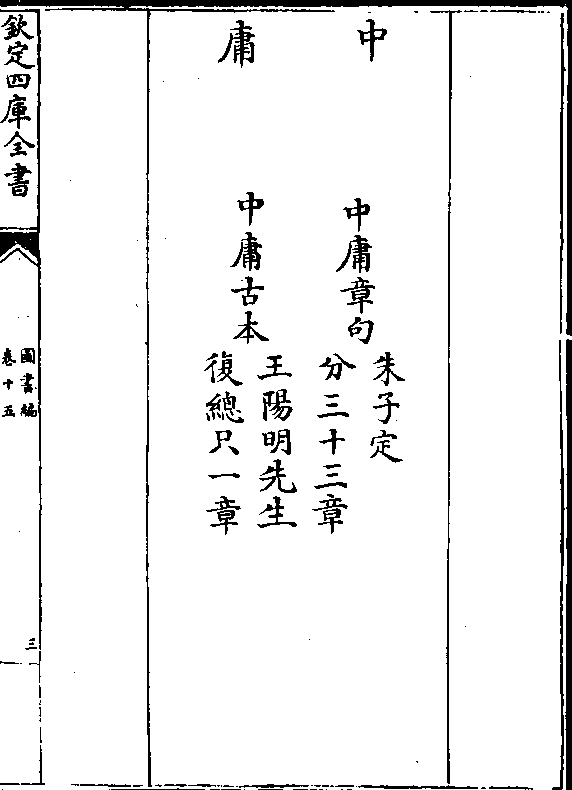 中庸
中庸章句
朱子定
分三十三章
中庸古本
王陽明先生
復總只一章
欽定四庫全書
圖書編
卷十五
三